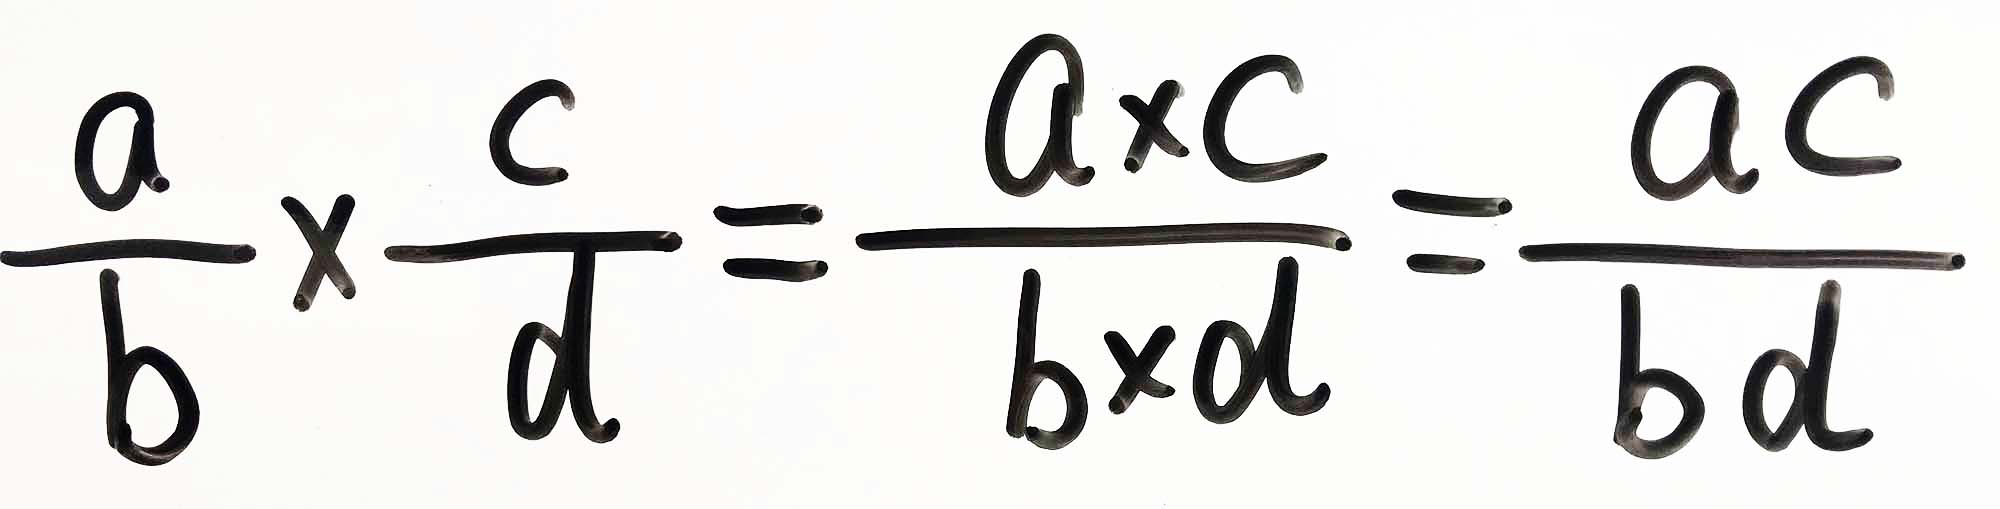 a/b × c/d = a×c/b×d = ac/bd